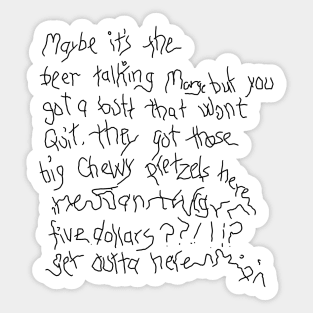 Maybe it's the
beer talking Marge but you
got a butt that wont
Quit. they got those
big Chewy pretzels here
five dollars??!!!?
get outta here